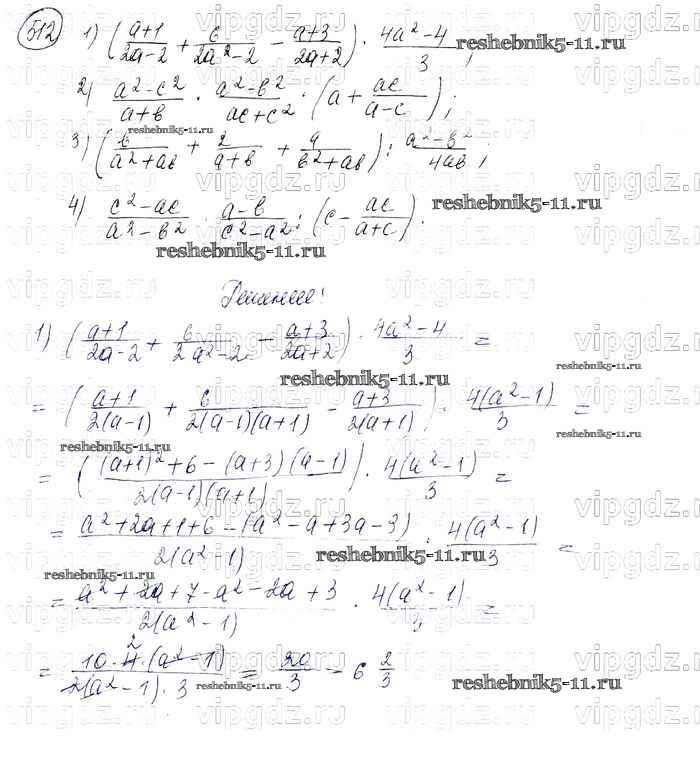 512 1) ( (a+1)/(2a-2) + 6/(2a²-2) - (a+3)/(2a+2) ) · (4a²-4)/3 ;
2) (a²-c²)/(a+b) · (a²-b²)/(ac+c²) · (a + ac/(a-c)) ;
3) ( b/(a²+ab) + 2/(a+b) + a/(b²+ab) ) : (a²-b²)/(4ab) ;
4) (c²-ac)/(a²-b²) · (a-b)/(c²-a²) : (c - ac/(a+c)) .
Решение!
1) ( (a+1)/(2a-2) + 6/(2a²-2) - (a+3)/(2a+2) ) · (4a²-4)/3 =
= ( (a+1)/(2(a-1)) + 6/(2(a-1)(a+1)) - (a+3)/(2(a+1)) ) · 4(a²-1)/3 =
= ( ((a+1)²+6-(a+3)(a-1))/(2(a-1)(a+1)) ) · 4(a²-1)/3 =
= (a²+2a+1+6-(a²-a+3a-3))/(2(a²-1)) · 4(a²-1)/3 =
= (a²+2a+7-a²-2a+3)/(2(a²-1)) · 4(a²-1)/3 =
= (10·4·(a²-1))/(2(a²-1)·3) = 20/3 = 6 2/3
reshebnik5-11.ru
vipgdz.ru